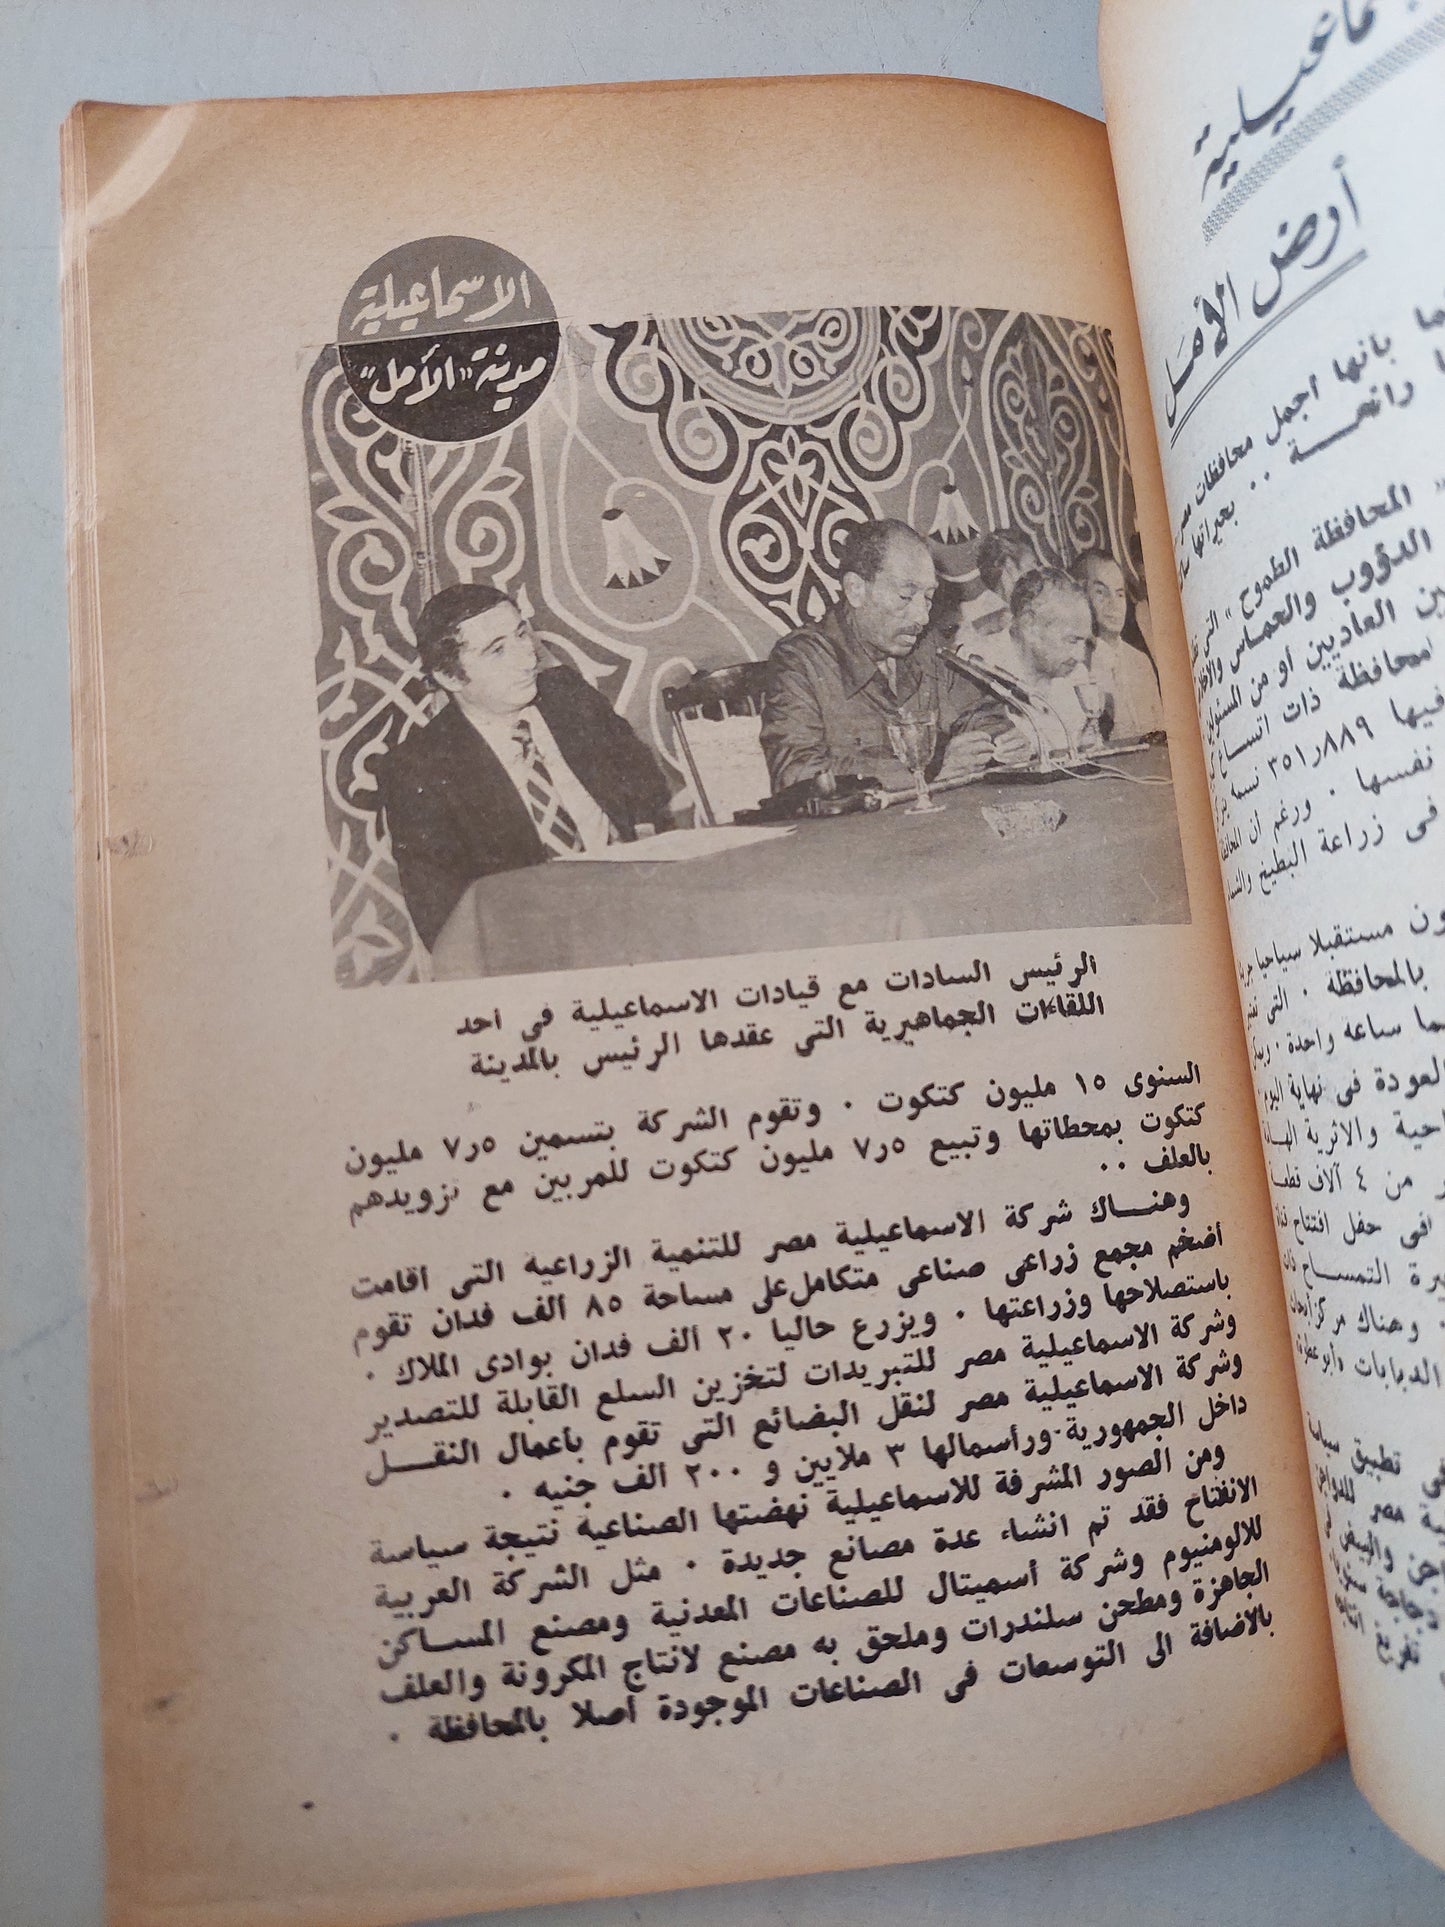 الاسماعيلية
مدينة "الأمل"
الرئيس السادات مع قيادات الاسماعيلية في أحد
اللقاءات الجماهيرية التي عقدها الرئيس بالمدينة
السنوى ١٥ مليون كتكوت . وتقوم الشركة بتسمين ٥ر٧ مليون
كتكوت بمحطاتها وتبيع ٥ر٧ مليون كتكوت للمربين مع تزويدهم
بالعلف ..
وهنـــاك شركة الاسماعيلية مصر للتنمية الزراعية التى أقامت
أضخم مجمع زراعى صناعى متكامل على مساحة ٨٥ ألف فدان تقوم
باستصلاحها وزراعتها . ويزرع حاليا ٢٠ ألف فدان بوادى الملاك .
وشركة الاسماعيلية مصر للتبريدات لتخزين السلع القابلة للتصدير
وشركة الاسماعيلية مصر لنقل البضائع التى تقوم بأعمال النقـــل
داخل الجمهورية . ورأسمالها ٣ ملايين و ٢٠٠ ألف جنيه .
ومن الصور المشرفة للاسماعيلية نهضتها الصناعية نتيجة سياسة
الانفتاح فقد تم انشاء عدة مصانع جديدة . مثل الشركة العربية
للالومنيوم وشركة أسميتال للصناعات المعدنية ومصنع المســاكن
الجاهزة ومطحن سلندرات وملحق به مصنع لانتاج المكرونة والعلف
بالأضافة الى التوسعات فى الصناعات الموجودة أصلا بالمحافظة .
أرض الأمل
بأنها أجمل محافظات مصر
رائعـــة .. بحيراتها
المحافظة الطموح " التى
الدؤوب والحماس
العاديين أو من المسئولين
محافظة ذات اتســاع
فيها ٨٨٩ر٣٥١ نسمة
نفسها . ورغم أن
فى زراعة البطيخ
مستقبلا سياحيا
بالمحافظة . التى
ساعه واحدة .
العودة فى نهاية اليوم
والاثرية
من ٤ آلاف قطعة
فى حفل افتتاح قناة
التمســاح
وهناك مركز
الدبابات
تطبيق سياسة
مصر للدواجن